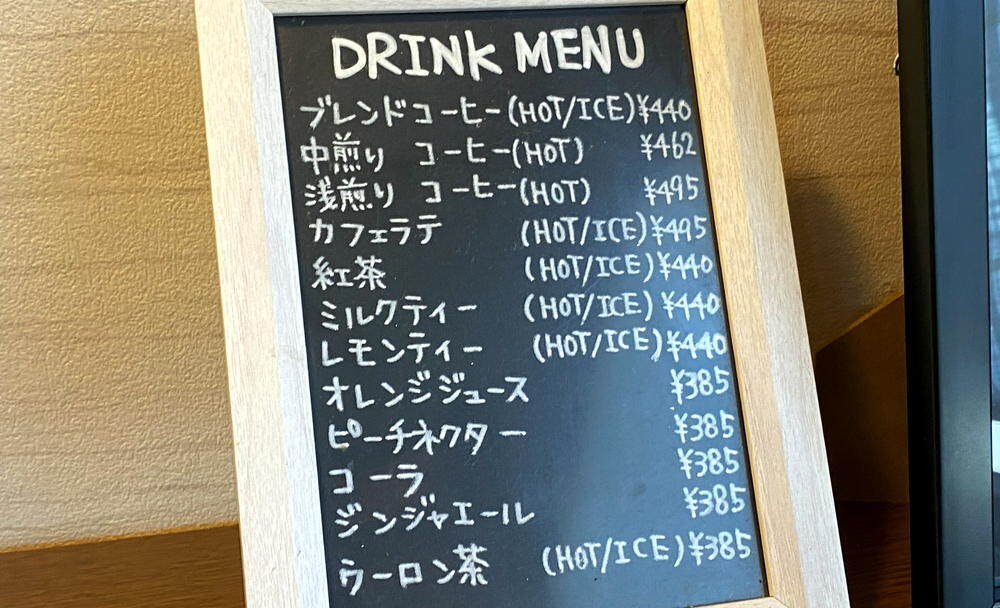 DRINK MENU
ブレンドコーヒー(HOT/ICE)¥440
中煎り コーヒー(HOT) ¥462
浅煎り コーヒー(HOT) ¥495
カフェラテ (HOT/ICE)¥495
紅茶 (HOT/ICE)¥440
ミルクティー (HOT/ICE)¥440
レモンティー (HOT/ICE)¥440
オレンジジュース ¥385
ピーチネクター ¥385
コーラ ¥385
ジンジャエール ¥385
ウーロン茶 (HOT/ICE)¥385